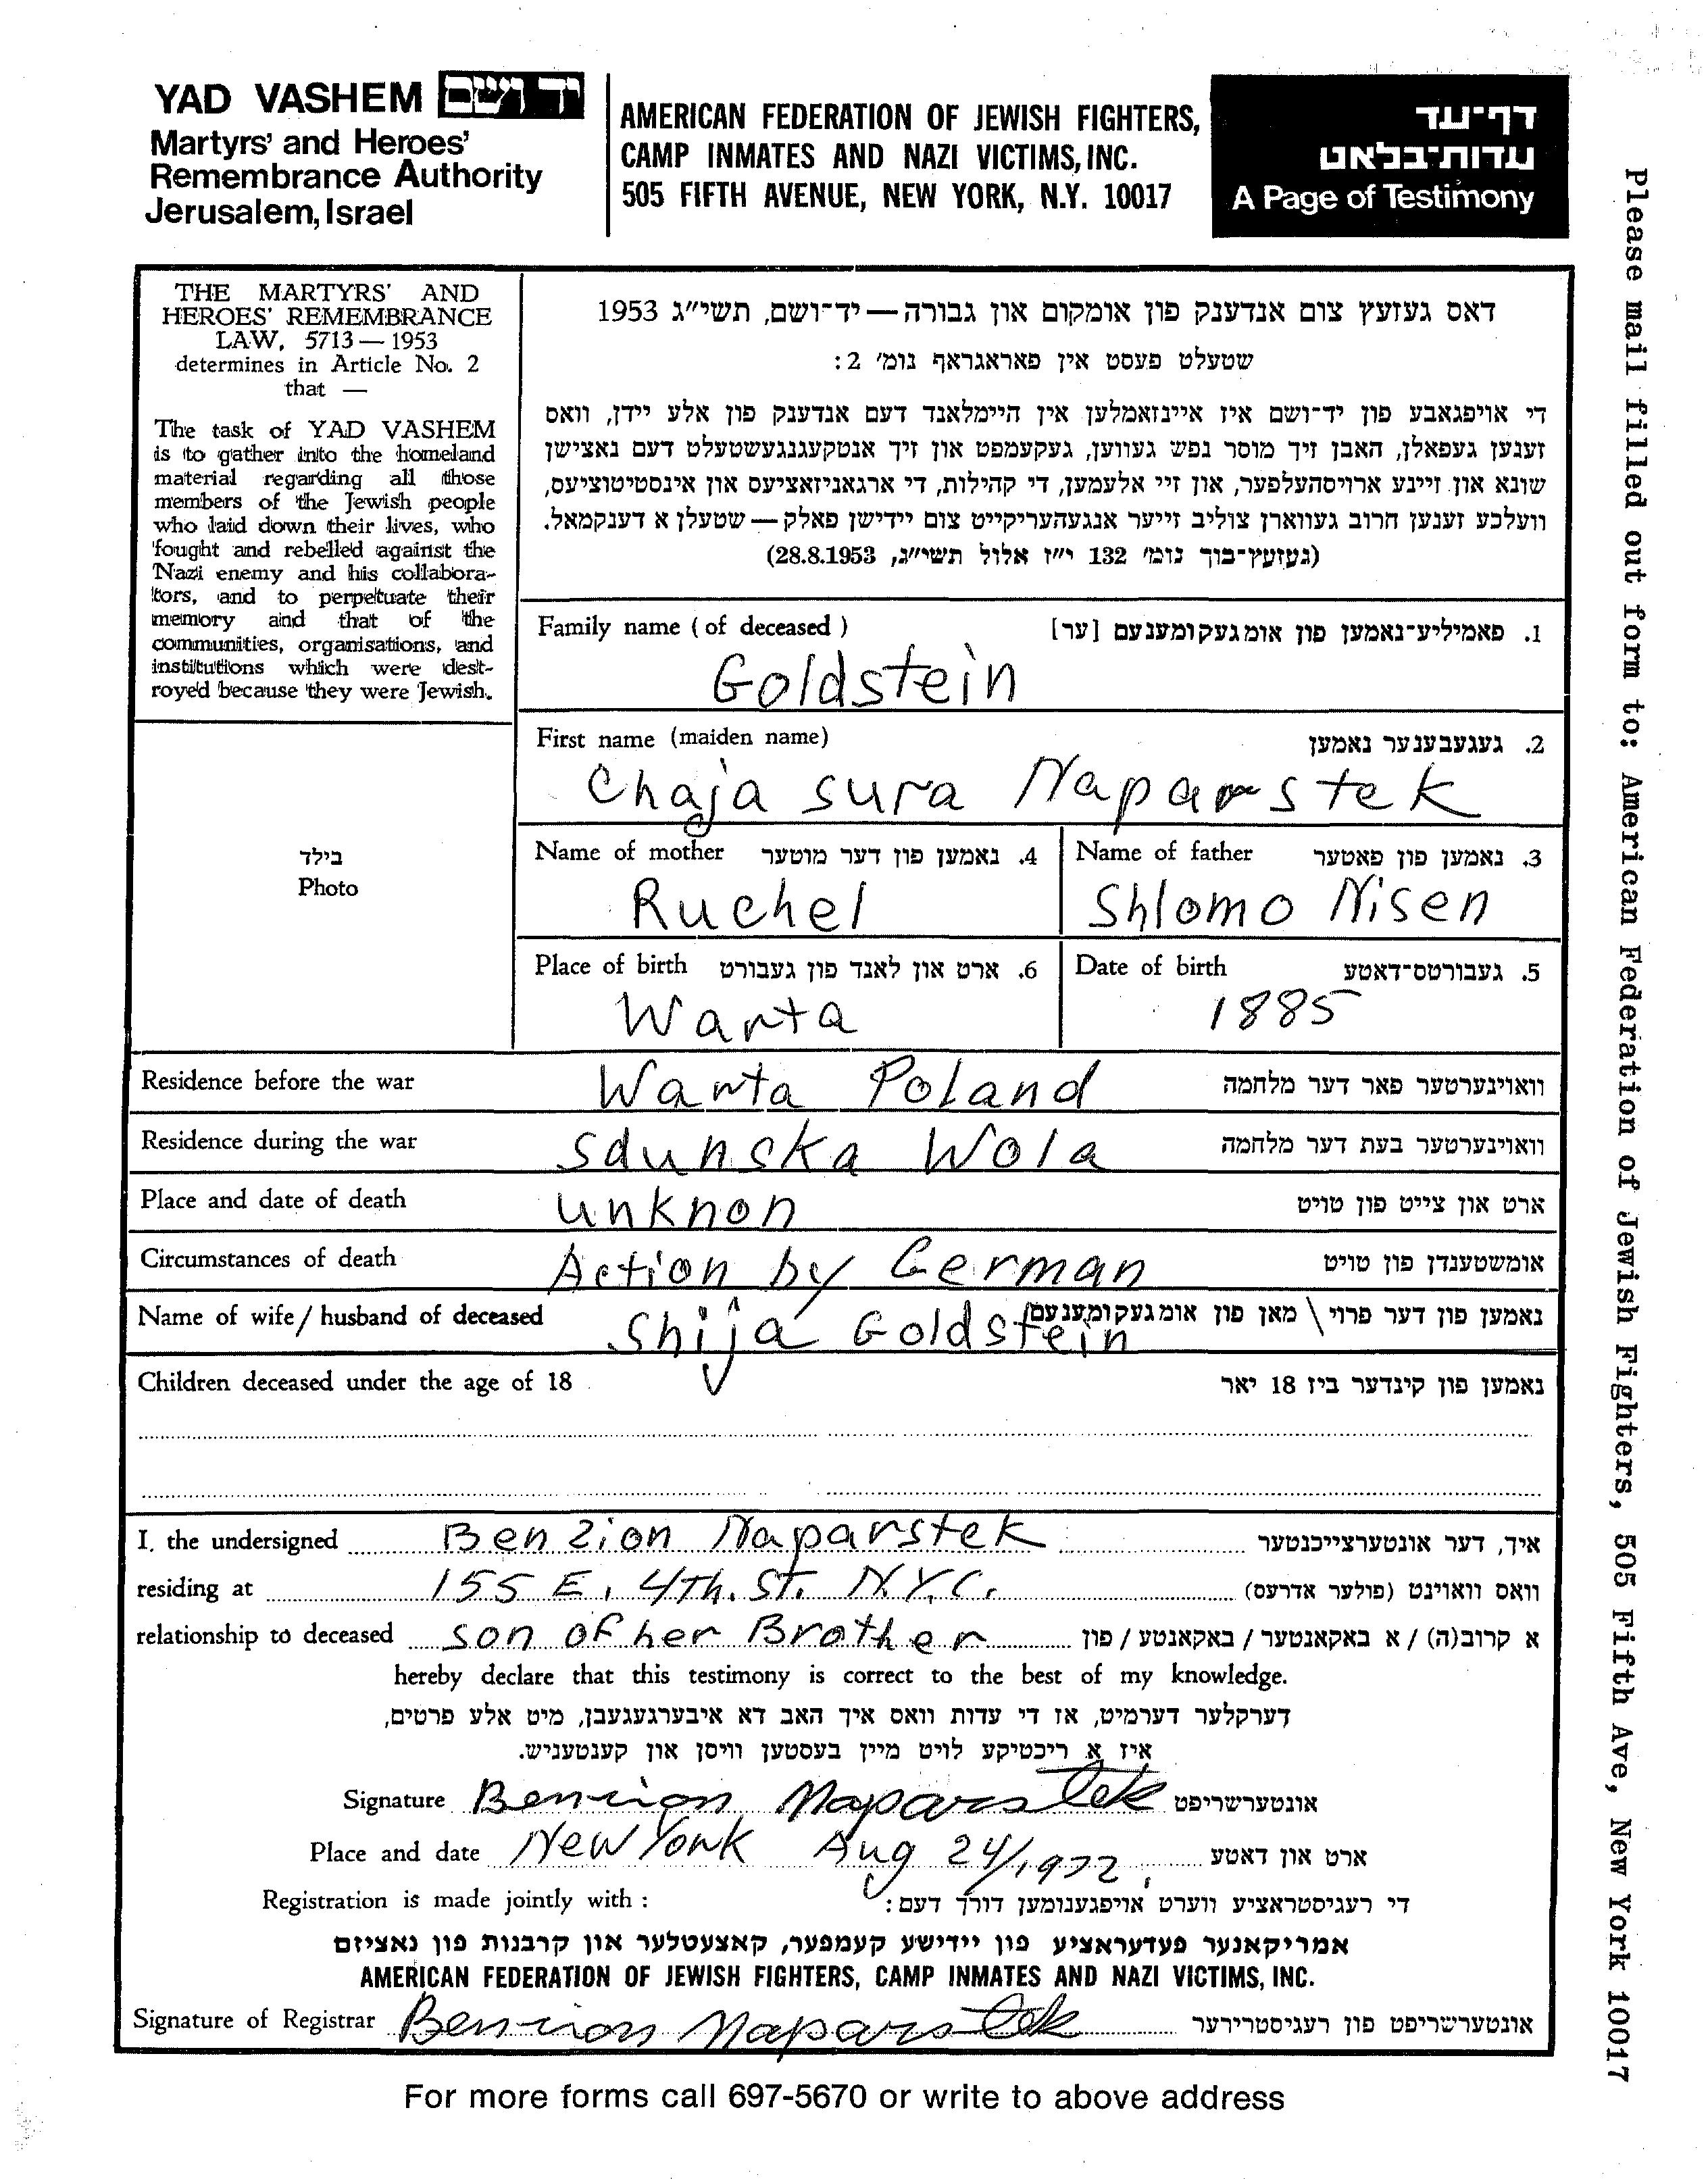 YAD VASHEM יד ושם
Martyrs' and Heroes'
Remembrance Authority
Jerusalem, Israel
AMERICAN FEDERATION OF JEWISH FIGHTERS,
CAMP INMATES AND NAZI VICTIMS, INC.
505 FIFTH AVENUE, NEW YORK, N.Y. 10017
דף־עד
עדות־בלאט
A Page of Testimony
Please mail filled out form to: American Federation of Jewish Fighters, 505 Fifth Ave, New York 10017
THE MARTYRS' AND
HEROES' REMEMBRANCE
LAW, 5713 — 1953
determines in Article No. 2
that —
The task of YAD VASHEM
is to gather into the homeland
material regarding all those
members of the Jewish people
who laid down their lives, who
fought and rebelled against the
Nazi enemy and his collabora-
tors, and to perpetuate their
memory and that of the
communities, organisations, and
institutions which were dest-
royed because they were Jewish.
דאס געזעץ צום אנדענק פון אומקום און גבורה — יד־ושם, תשי"ג 1953
שטעלט פעסט אין פאראגראף נומ' 2:
די אויפגאבע פון יד־ושם איז איינזאמלען אין היימלאנד דעם אנדענק פון אלע יידן, וואס
זענען געפאלן, האבן זיך מוסר נפש געווען, געקעמפט און זיך אנטקעגנגעשטעלט דעם נאצישן
שונא און זיינע ארויסהעלפער, און זיי אלעמען, די קהילות, די ארגאניזאציעס און אינסטיטוציעס,
וועלכע זענען חרוב געווארן צוליב זייער אנגעהעריקייט צום יידישן פאלק — שטעלן א דענקמאל.
(געזעץ־בוך נומ' 132 י"ז אלול תשי"ג, 28.8.1953)
Family name (of deceased) 1. פאמיליע־נאמען פון אומגעקומענעם [ער]
Goldstein
First name (maiden name) 2. געגעבענער נאמען
Chaja sura Naparstek
בילד
Photo
Name of mother 4. נאמען פון דער מוטער
Ruchel
Name of father 3. נאמען פון פאטער
Shlomo Nisen
Place of birth 6. ארט און לאנד פון געבורט
Warta
Date of birth 5. געבורטס־דאטע
1885
Residence before the war Warta Poland וואוינערטער פאר דער מלחמה
Residence during the war Sdunska Wola וואוינערטער בעת דער מלחמה
Place and date of death unknon ארט און צייט פון טויט
Circumstances of death Action by German אומשטענדן פון טויט
Name of wife / husband of deceased Shija Goldstein נאמען פון דער פרוי \ מאן פון אומגעקומענעם
Children deceased under the age of 18 נאמען פון קינדער ביז 18 יאר
I, the undersigned Ben Zion Naparstek איך, דער אונטערצייכנטער
residing at 155 E. 4Th. ST. N.Y.C. וואס וואוינט (פולער אדרעס)
relationship to deceased son of her Brother א קרוב(ה) / א באקאנטער / באקאנטע / פון
hereby declare that this testimony is correct to the best of my knowledge.
דערקלער דערמיט, אז די עדות וואס איך האב דא איבערגעגעבן, מיט אלע פרטים,
איז א ריכטיקע לויט מיין בעסטען וויסן און קענטעניש.
Signature Benzion Naparstek אונטערשריפט
Place and date New York Aug 24/1972. ארט און דאטע
Registration is made jointly with : די רעגיסטראציע ווערט אויפגענומען דורך דעם:
אמריקאנער פעדעראציע פון יידישע קעמפער, קאצעטלער און קרבנות פון נאציזם
AMERICAN FEDERATION OF JEWISH FIGHTERS, CAMP INMATES AND NAZI VICTIMS, INC.
Signature of Registrar Benzion Naparstek אונטערשריפט פון רעגיסטרירער
For more forms call 697-5670 or write to above address